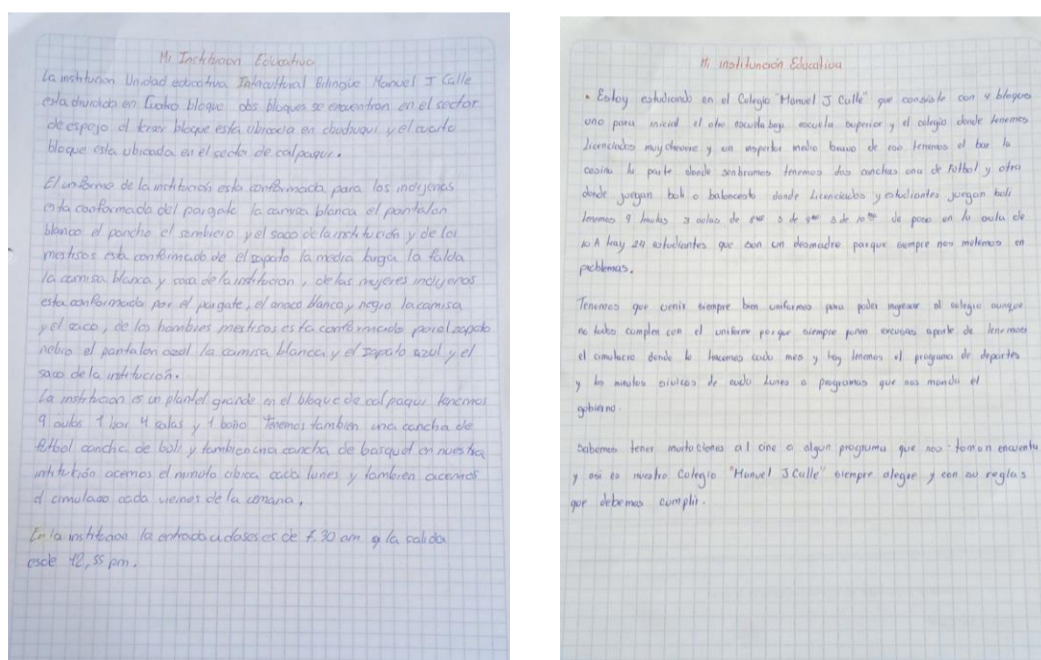 Mi Institucion Educativa
La institucion Unidad educativa Intercultural Bilingüe Manuel J Calle
esta dividido en Cuatro bloque dos bloques se encuentran en el sector
de espejo el tercer bloque esta ubicacia en chuduqui y el cuarto
bloque esta ubicada en el secto de calpaqui.
El uniforme de la institucion esta conformada para los indijenas
esta conformada del pargate la camisa blanca el pantalon
blanco el poncho el sombrero y el saco de la institución y de los
mestisos esta conformado de el zapato la media larga la falda
la camisa blanca y de la institucion, de las mujeres indijenas
esta conformada por el pargate, el anaco blanco y negro la camisa
y el saco, de los hombres mestisos esta conformado por el zapato
nebro el pantalon azul la camisa blanca y el zapato azul y el
saco de la institución.
La institucion es un plantel grande en el bloque de calpaqui tenemos
9 aulas 1 bar 4 salas y 1 baño Tenemos tambien una cancha de
fetbol cancha de boli y tambien una cancha de basquet en nuestra
intitución acemos el minuto cibica cada lunes y tambien acemos
el cimulaco cada viernes de la cemana.
En la institucion la entrada a clases es de 7.30 am y la salida
esde 12,55 pm.
Mi institución Educativa
• Estoy estudiando en el Colegio "Manuel J Calle" que consiste con 4 bloques
uno para inicial el otro escuela baja escuela superior y el colegio donde tenemos
licenciados muy chevere y un inspertor medio bravo de eso tenemos el bar la
cosina la parte donde sembramos tenemos dos canchas una de fútbol y otra
donde juegan boli o baloncesto donde Licenciados y estudiantes juegan boli
tenemos 9 3 aulas de 3 de 3 de 10 de paso en la aula de
10 A hay 24 estudiantes que son un desmadre parque siempre nos metemos en
problemas.
Tenemos que venir siempre bien uniformes para poder ingresar al colegio aunque
no todos cumplen con el uniforme porque siempre ponen excusas aparte de tenemos
el simulacro donde lo hacemos cada mes y hoy tenemos el programa de deportes
y los minutos sivicos de cada lunes o programas que nos manda el
gobierno.
Sabemos tener al cine o algun programa que nos toman encuenta
y asi es nuestro Colegio "Manuel J Calle" siempre alegre y con su reglas
que debemos cumplir.